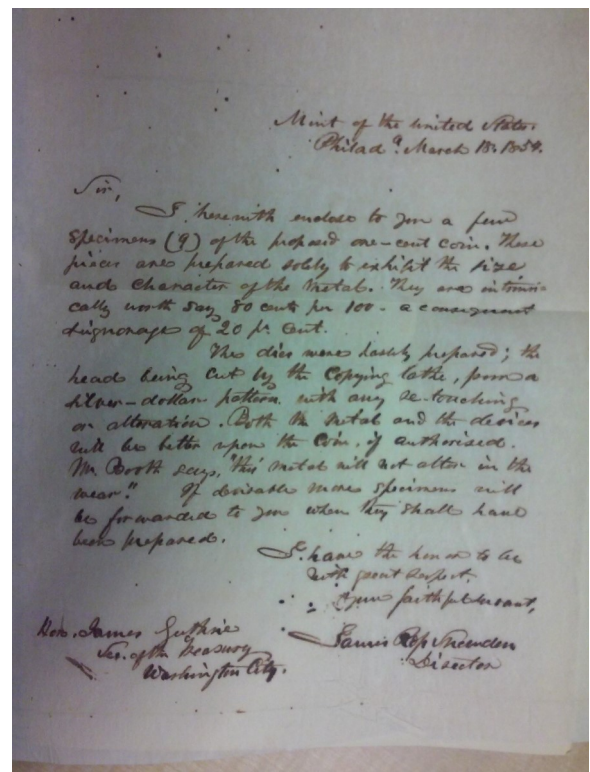 Mint of the United States.
Philada. March 18. 1854.
Sir,
I herewith enclose to you a few
specimens (9) of the proposed one-cent coin. These
pieces are prepared solely to exhibit the size
and character of the metal. They are intrinsi
cally worth say 80 cents per 100 - a consequent
seignorage of 20 pr cent.
The dies were hastily prepared; the
head being cut by the copying lathe, from a
silver-dollar pattern with any re-touching
or alteration. Both the metal and the devices
will be better upon the coin, if authorised.
Mr Booth says, "this metal will not alter in the
wear." If desirable more specimens will
be forwarded to you when they shall have
been prepared.
I have the honor to be
with great respect.
Your faithful servant,
James Ross Snowden
Director
Hon. James Guthrie
Sec. of the Treasury
Washington City.